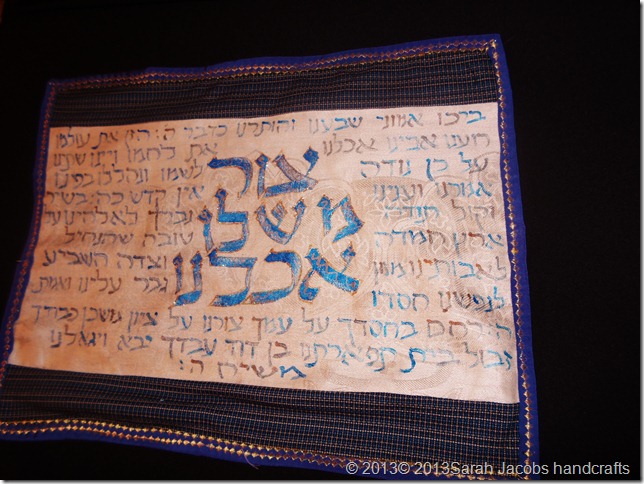 ברכו אמוני שבענו והותרנו כדבר ה': הזן את עולמו
רוענו אבינו אכלנו את לחמו ויינו שתינו
על כן נודה לשמו ונהללו בפינו
אמרנו וענינו אין קדש כה': בשיר
וקול תודה נברך לאלהינו על
ארץ חמדה טובה שהנחיל
לאבותינו מזון וצדה השביע
לנפשנו חסדו גבר עלינו ואמת
ה': רחם בחסדך על עמך צורנו על ציון משכן כבודך
זבול בית תפארתנו בן דוד עבדך יבא ויגאלנו
משיח ה':
צור
משלו
אכלנו
© 2013© 2013Sarah Jacobs handcrafts